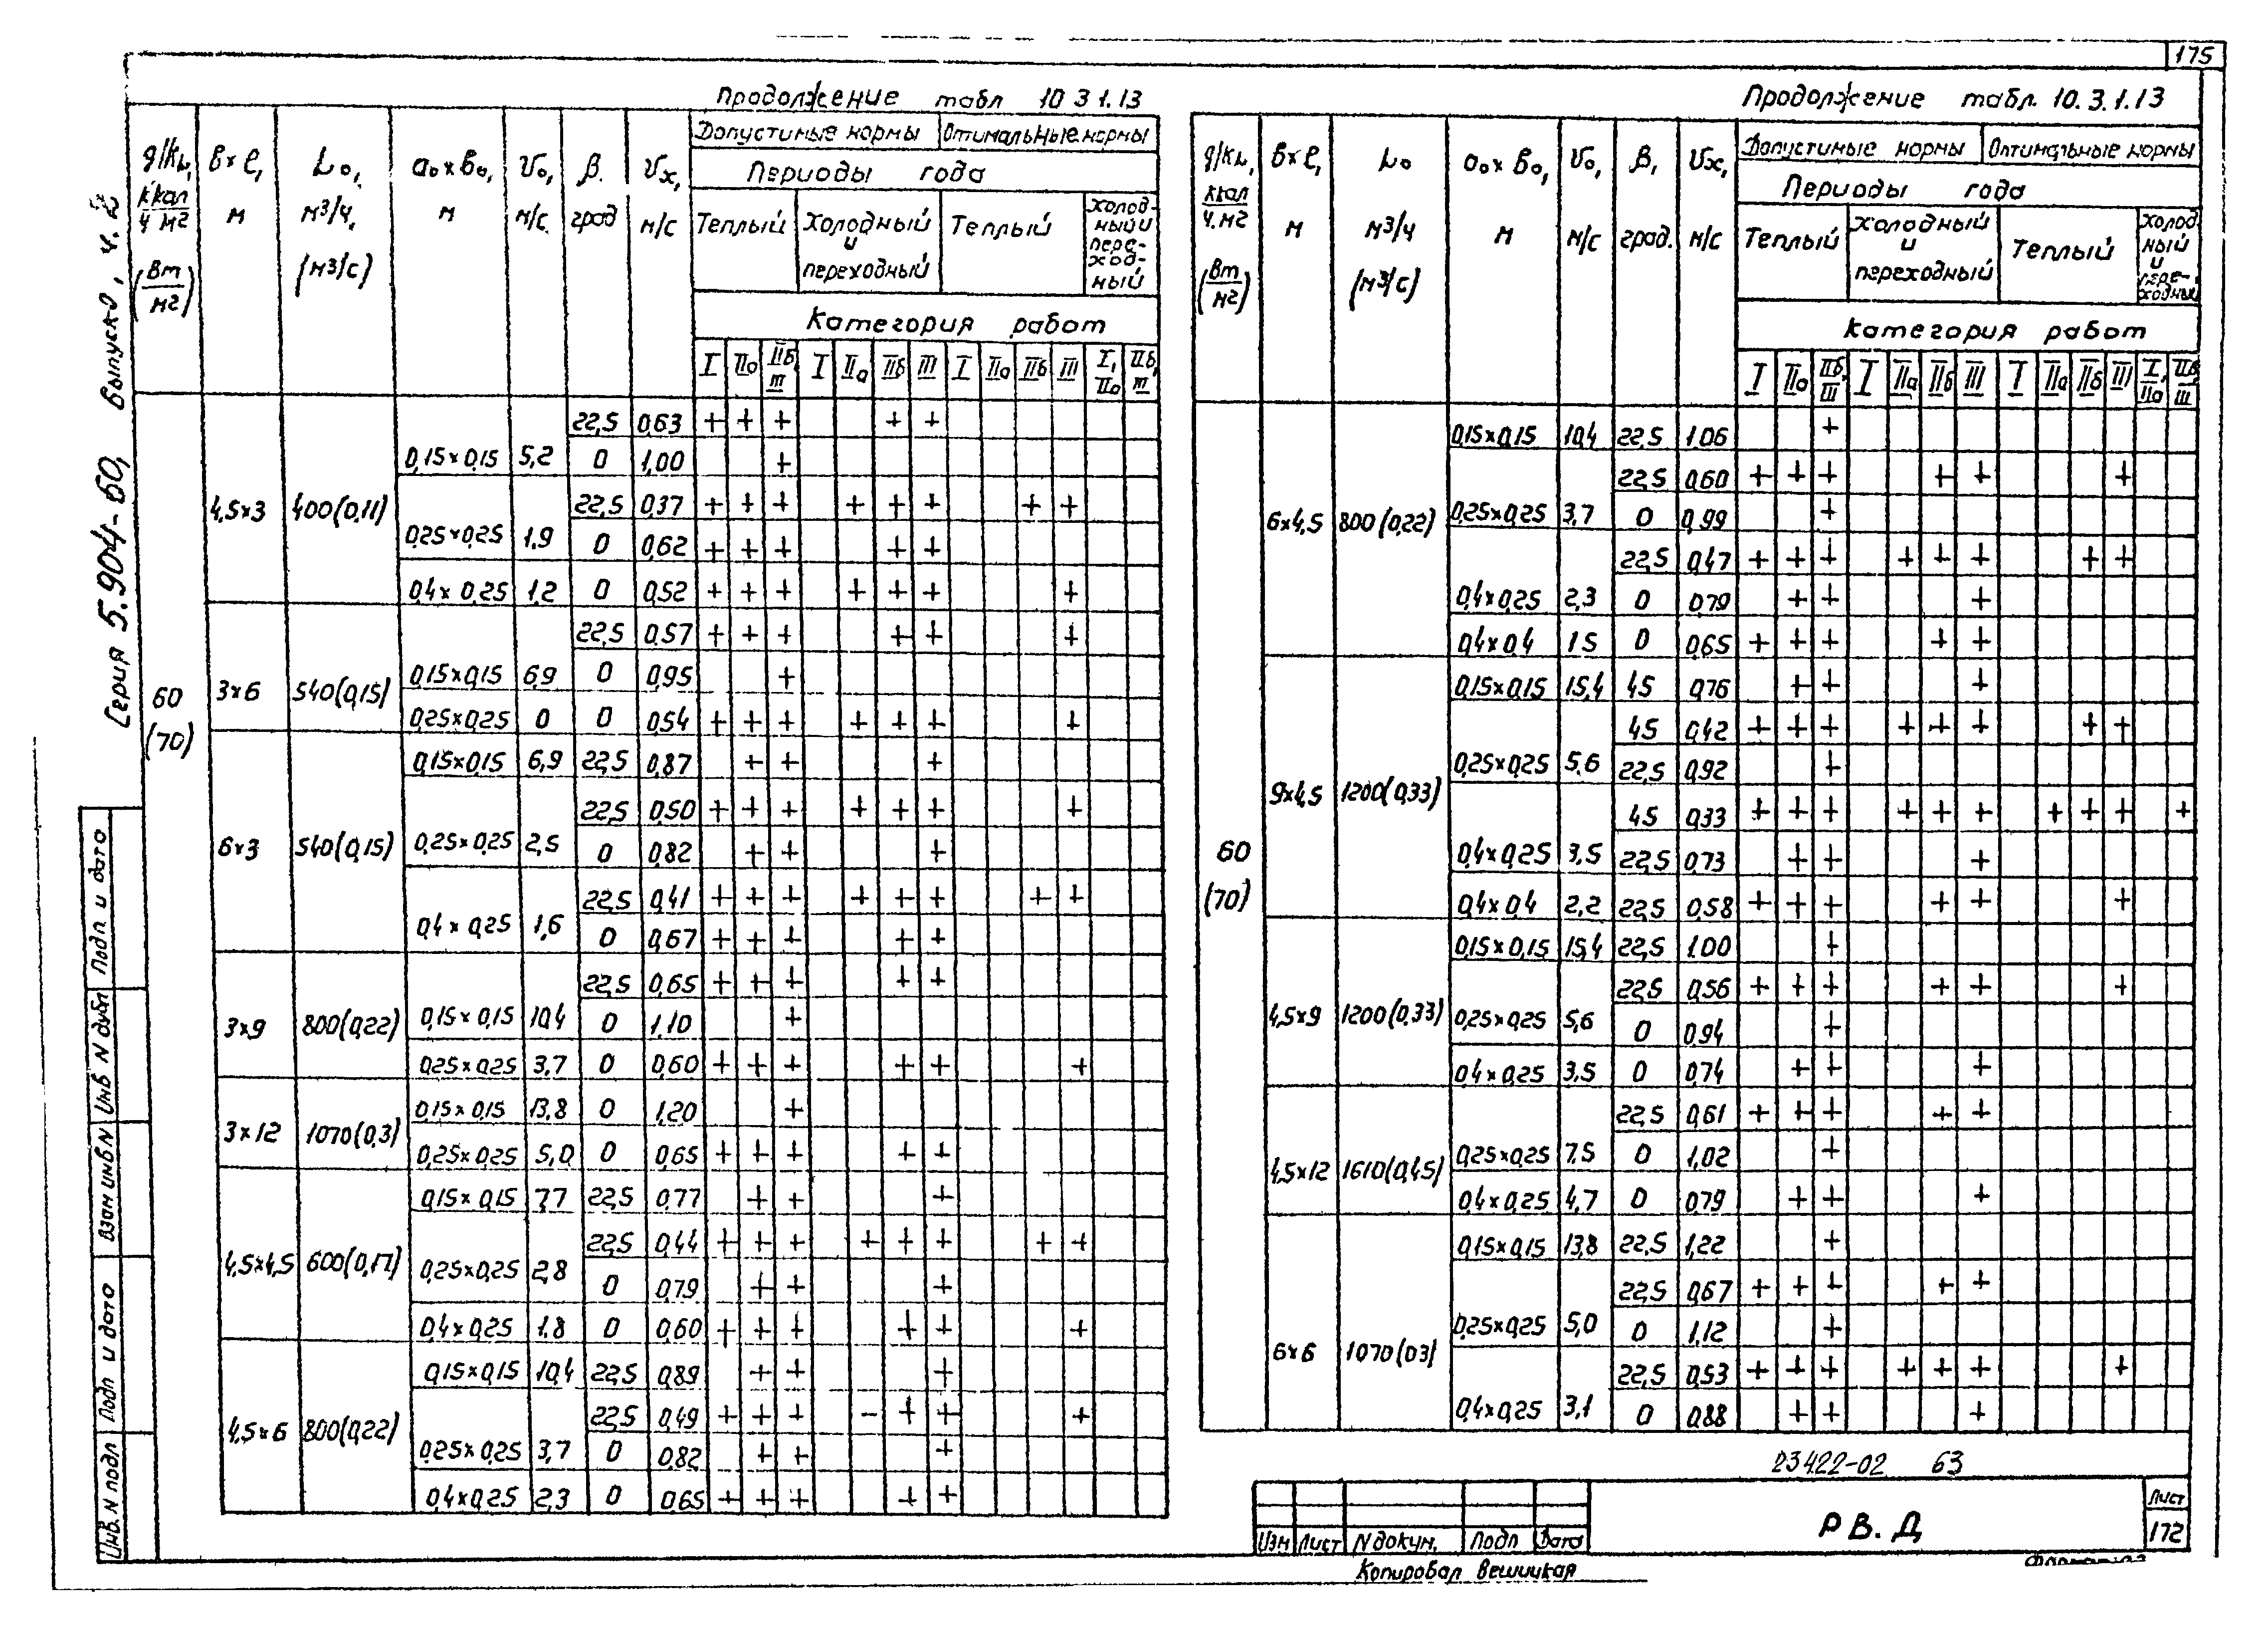 175
Серия 5.904-60, выпуск 0, ч. 2
Продолжение табл 10 3 1.13
g/Kh, ккал/ч м2 (Вт/м2) | в×l, м | Lo, м3/ч, (м3/с) | ao×во, м | υo, м/с | β. град | υx, м/с | Допустимые нормы | Оптимальные нормы
Периоды года
Теплый | Холодный и переходный | Теплый | Холодный и переходный
Категория работ
I | IIа | IIб, III | I | IIа | IIб | III | I | IIа | IIб | III | I, IIа | IIб, III
60 (70)
4,5×3 | 400(0,11) | 0,15×0,15 | 5,2 | 22,5 | 0,63 | + | + | + | | | + | +
0 | 1,00 | | | +
0,25×0,25 | 1,9 | 22,5 | 0,37 | + | + | + | | + | + | + | | | + | +
0 | 0,62 | + | + | + | | | + | +
0,4×0,25 | 1,2 | 0 | 0,52 | + | + | + | | + | + | + | | | | +
3×6 | 540(0,15) | 0,15×0,15 | 6,9 | 22,5 | 0,57 | + | + | + | | | + | + | | | | +
0 | 0,95 | | | +
0,25×0,25 | 0 | 0 | 0,54 | + | + | + | | + | + | + | | | | +
6×3 | 540(0,15) | 0,15×0,15 | 6,9 | 22,5 | 0,87 | | + | + | | | | +
0,25×0,25 | 2,5 | 22,5 | 0,50 | + | + | + | | + | + | + | | | | +
0 | 0,82 | | + | + | | | | +
0,4×0,25 | 1,6 | 22,5 | 0,41 | + | + | + | | + | + | + | | | + | +
0 | 0,67 | + | + | + | | | + | +
3×9 | 800(0,22) | 0,15×0,15 | 10,4 | 22,5 | 0,65 | + | + | + | | | + | +
0 | 1,10 | | | +
0,25×0,25 | 3,7 | 0 | 0,60 | + | + | + | | | + | + | | | | +
3×12 | 1070(0,3) | 0,15×0,15 | 13,8 | 0 | 1,20 | | | +
0,25×0,25 | 5,0 | 0 | 0,65 | + | + | + | | | + | +
4,5×4,5 | 600(0,17) | 0,15×0,15 | 7,7 | 22,5 | 0,77 | | + | + | | | | +
0,25×0,25 | 2,8 | 22,5 | 0,44 | + | + | + | | + | + | + | | | + | +
0 | 0,79 | | + | + | | | | +
0,4×0,25 | 1,8 | 0 | 0,60 | + | + | + | | | + | + | | | | +
4,5×6 | 800(0,22) | 0,15×0,15 | 10,4 | 22,5 | 0,89 | | + | + | | | | +
0,25×0,25 | 3,7 | 22,5 | 0,49 | + | + | + | | - | + | + | | | | +
0 | 0,82 | | + | + | | | | +
0,4×0,25 | 2,3 | 0 | 0,65 | + | + | + | | | + | +
Продолжение табл. 10.3.1.13
g/Kh, ккал/ч.м2 (Вт/м2) | в×l, м | Lo м3/ч (м3/с) | ao×во, м | υo, м/с | β, град. | υx, м/с | Допустимые нормы | Оптимальные нормы
Периоды года
Теплый | Холодный и переходный | Теплый | Холодный и переходный
Категория работ
I | IIа | IIб, III | I | IIа | IIб | III | I | IIа | IIб | III | I, IIа | IIб, III
60 (70)
6×4,5 | 800(0,22) | 0,15×0,15 | 10,4 | 22,5 | 1.06 | | | +
0,25×0,25 | 3,7 | 22,5 | 0,60 | + | + | + | | | + | + | | | | +
0 | 0,99 | | | +
0,4×0,25 | 2,3 | 22,5 | 0,47 | + | + | + | | + | + | + | | | + | +
0 | 0,79 | | + | + | | | | +
0,4×0,4 | 1 5 | 0 | 0,65 | + | + | + | | | + | +
9×4,5 | 1200(0,33) | 0,15×0,15 | 15,4 | 45 | 0,76 | | + | + | | | | +
0,25×0,25 | 5,6 | 45 | 0,42 | + | + | + | | + | + | + | | | + | +
22,5 | 0,92 | | | +
0,4×0,25 | 3,5 | 45 | 0,33 | + | + | + | | + | + | + | | + | + | + | | +
22,5 | 0,73 | | + | + | | | | +
0,4×0,4 | 2,2 | 22,5 | 0,58 | + | + | + | | | + | + | | | | +
4,5×9 | 1200(0,33) | 0,15×0,15 | 15,4 | 22,5 | 1.00 | | | +
0,25×0,25 | 5,6 | 22,5 | 0,56 | + | + | + | | | + | + | | | | +
0 | 0,94 | | | +
0,4×0,25 | 3,5 | 0 | 0,74 | | + | + | | | | +
4,5×12 | 1610(0,45) | 0,25×0,25 | 7,5 | 22,5 | 0,61 | + | + | + | | | + | +
0 | 1,02 | | | +
0,4×0,25 | 4,7 | 0 | 0,79 | | + | + | | | | +
6×6 | 1070(03) | 0,15×0,15 | 13,8 | 22,5 | 1,22 | | | +
0,25×0,25 | 5,0 | 22,5 | 0,67 | + | + | + | | | + | +
0 | 1,12 | | | +
0,4×0,25 | 3,1 | 22,5 | 0,53 | + | + | + | | + | + | + | | | | +
0 | 0,88 | | + | + | | | | +
23422-02 63
Изм | Лист | N докум. | Подп | Дата
РВ.Д
Лист
172
Копировал Вешицкая
Инв. N подл | Подп и дата | Взам инв N | Инв N дубл | Подп и дата